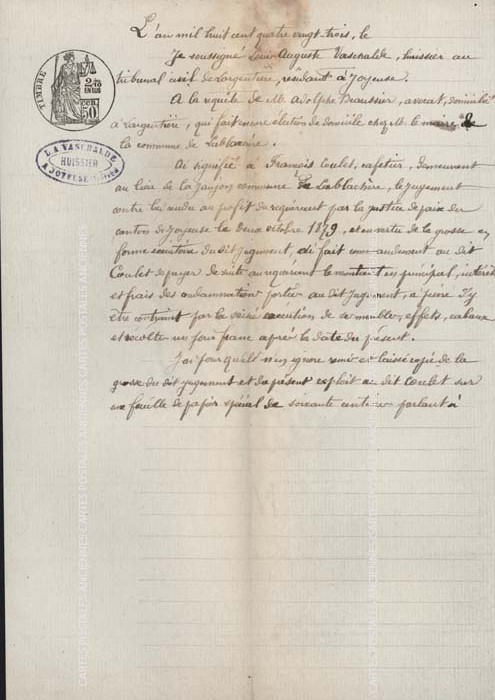 L'an mil huit cent quatre vingt-trois, le
Je soussigné Louis Auguste Vaschalde, huissier au
tribunal civil de Largentière, résidant à Joyeuse.
A la requête de Mr Adolphe Beaussier, avocat, domicilié
à Largentière, qui fait encore élection de domicile chez Mr le maire de
la commune de Lablachère.
Ai signifié à François Coulet, cafetier, demeurant
au lieu de la commune de Lablachère, le jugement
contre lui rendu au profit du requérant par la justice de paix du
canton de Joyeuse le deux octobre 1879, et en vertu de la grosse en
forme exécutoire du dit jugement, ai fait commandement au dit
Coulet de payer de suite au requérant le montant en principal, intérêts
et frais des condamnations portées au dit jugement, à peine d'y
être contraint par la saisie exécution de ses meubles, effets, cabaux
et récolte un jour franc après la date du présent.
J'ai pour qu'il n'en ignore remis et laissé copie de la
grosse du dit jugement et du présent exploit au dit Coulet sur
une feuille de papier spécial de soixante centimes parlant à
TIMBRE
2/10
EN SUS
50
CEN.
L.A VASCHALDE
HUISSIER
A JOYEUSE
CARTES POSTALES ANCIENNES